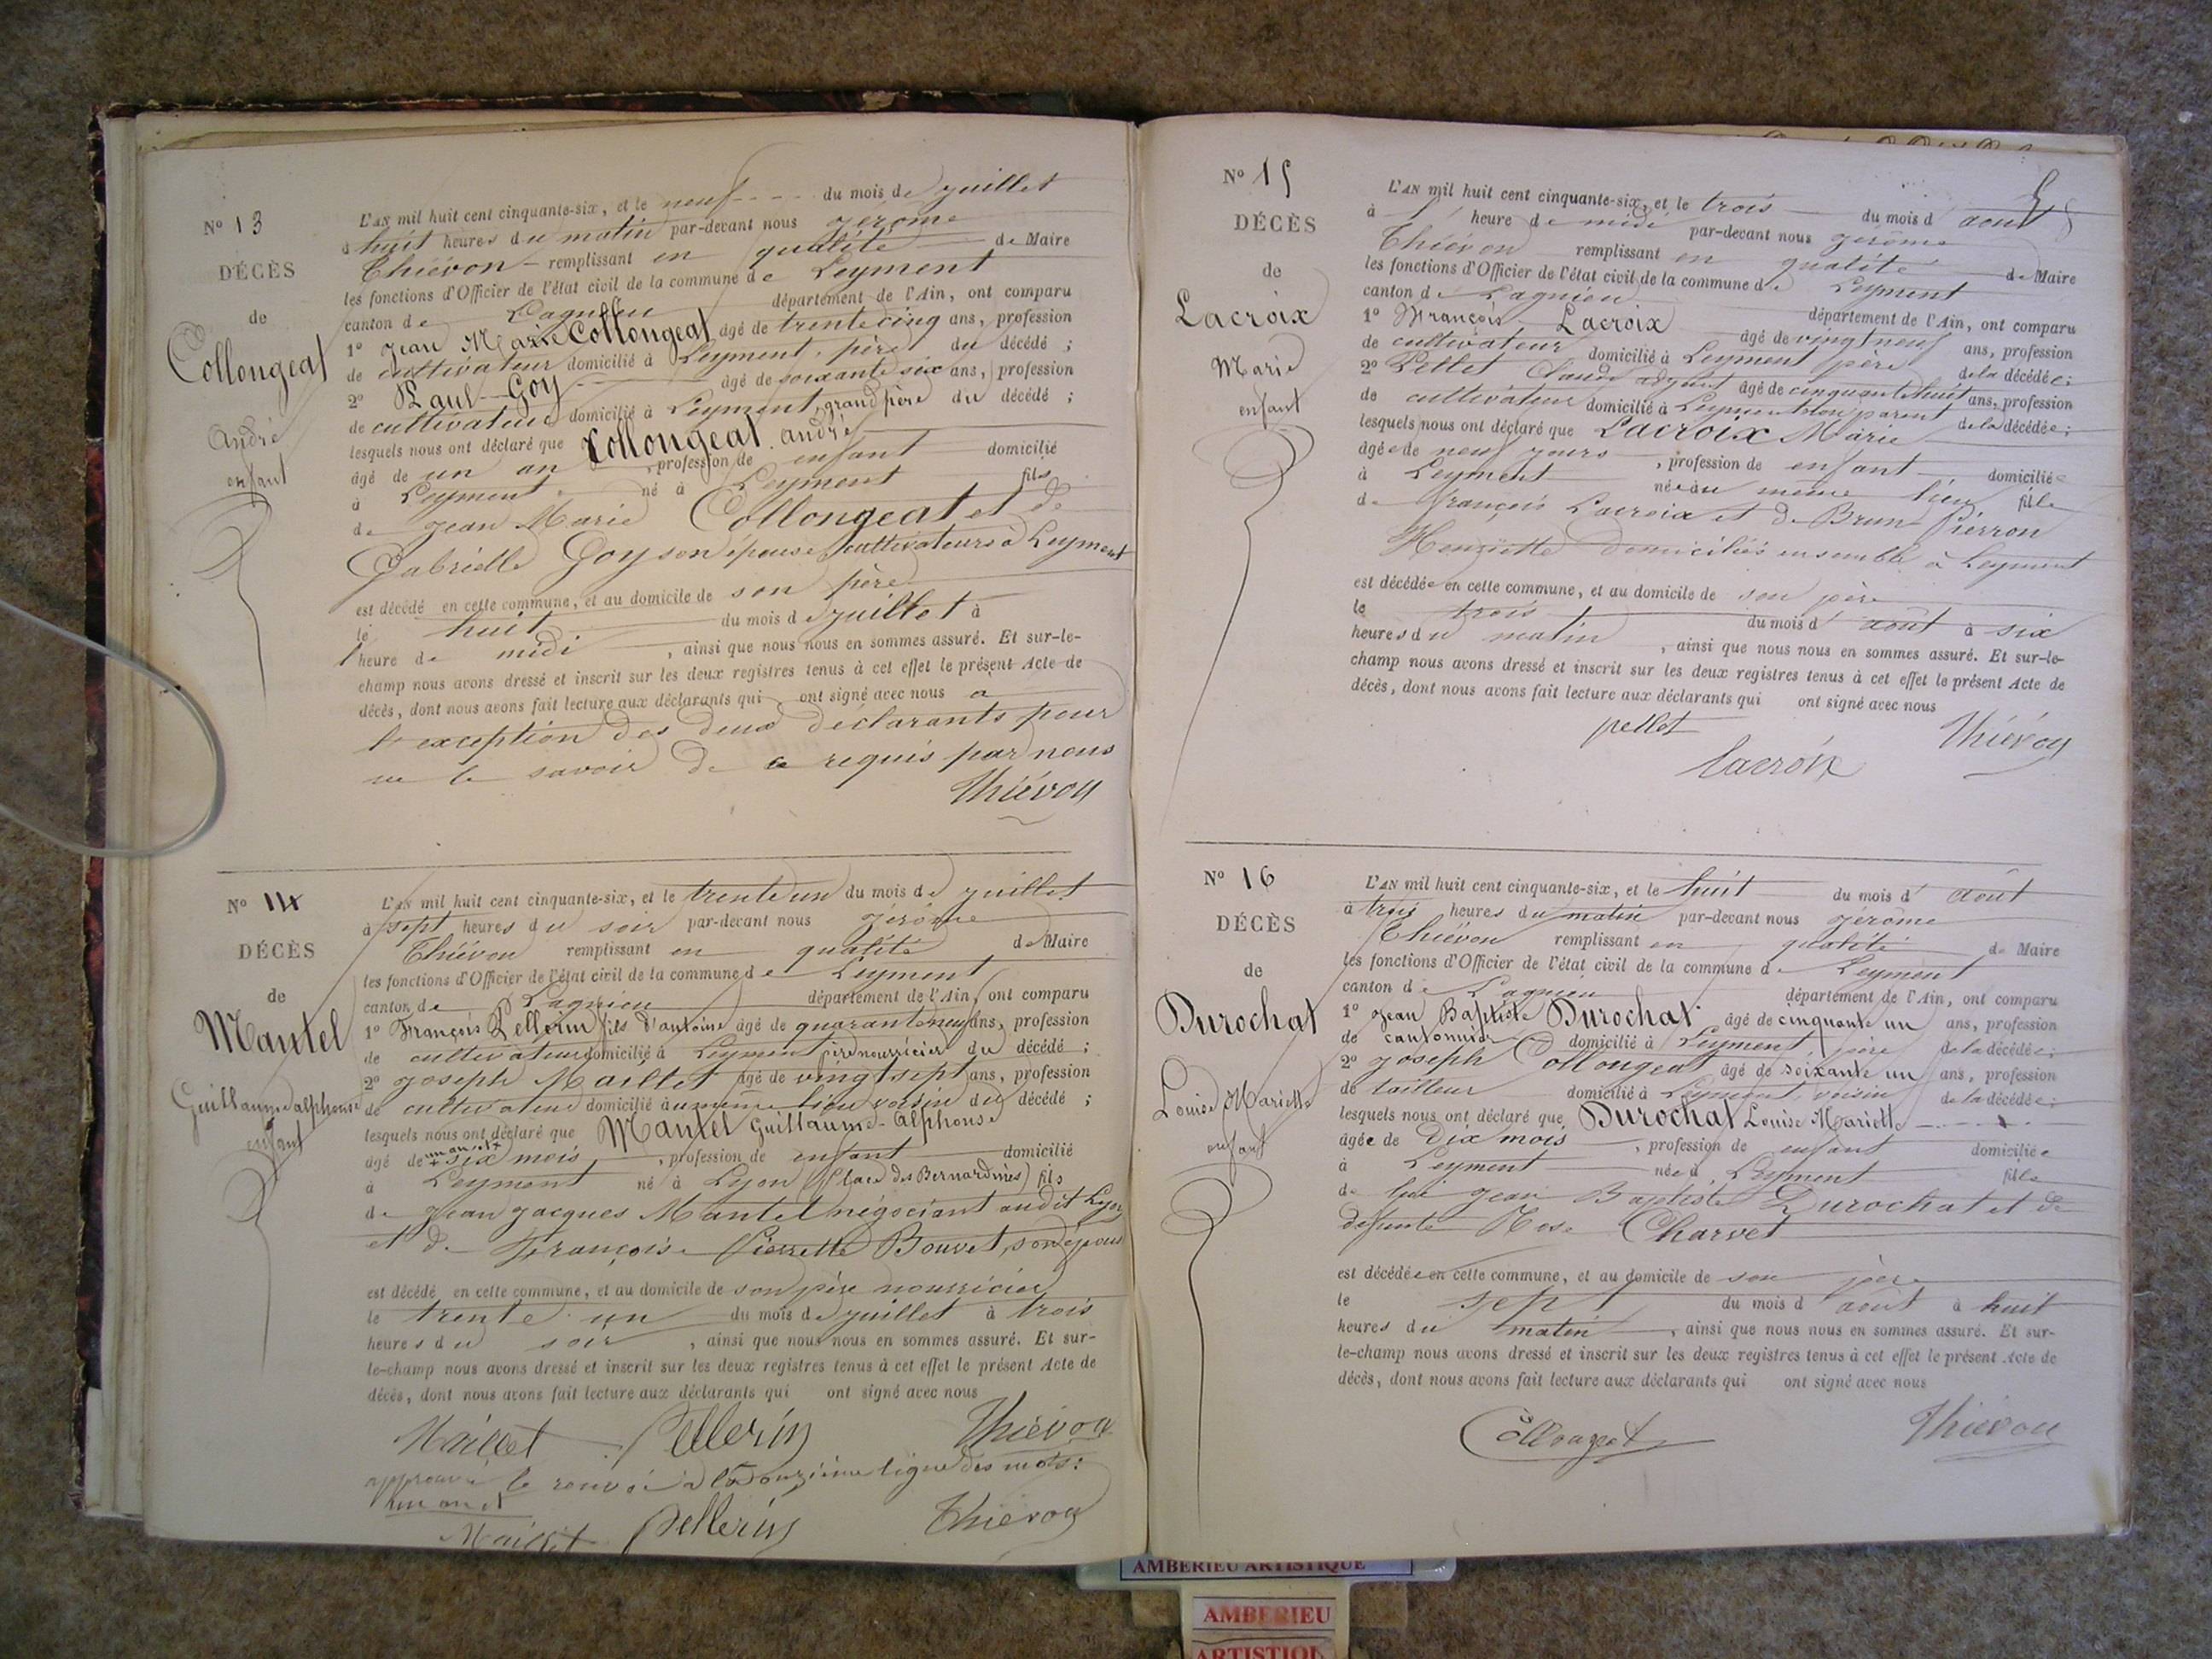 N° 13
DÉCÈS
de
Collongeat
André
enfant
L'AN mil huit cent cinquante-six, et le neuf du mois de juillet
à huit heures du matin par-devant nous jérome
Thiévon remplissant en qualité de Maire
les fonctions d'Officier de l'état civil de la commune de Leyment
canton de Lagnieu département de l'Ain, ont comparu
1° jean Marie Collongeat âgé de trente cinq ans, profession
de cultivateur domicilié à Leyment, père du décédé ;
2° Paul Goy âgé de soixante six ans, profession
de cultivateur domicilié à Leyment, grand père du décédé ;
lesquels nous ont déclaré que Collongeat andré
âgé de un an , profession de enfant domicilié
à Leyment né à Leyment fils
de jean Marie Collongeat et de
Gabrielle Goy son épouse, cultivateurs à Leyment
est décédé en cette commune, et au domicile de son père
le huit du mois de juillet à
1 heure de midi , ainsi que nous nous en sommes assuré. Et sur-le-
champ nous avons dressé et inscrit sur les deux registres tenus à cet effet le présent Acte de
décès, dont nous avons fait lecture aux déclarants qui ont signé avec nous a
l'exception des deux déclarants pour
ne le savoir de ce requis par nous
Thiévon
N° 14
DÉCÈS
de
Mantel
Guillaume alphonse
enfant
L'AN mil huit cent cinquante-six, et le trente un du mois de juillet
à sept heures du soir par-devant nous jérôme
Thiévon remplissant en qualité de Maire
les fonctions d'Officier de l'état civil de la commune de Leyment
canton de Lagnieu département de l'Ain, ont comparu
1° François Pellerin fils d'antoine âgé de quarante neuf ans, profession
de cultivateur domicilié à Leyment père nourricier du décédé ;
2° joseph Maillet âgé de vingt sept ans, profession
de cultivateur domicilié au même lieu voisin du décédé ;
lesquels nous ont déclaré que Mantel Guillaume-alphonse
âgé de un an et six mois , profession de enfant domicilié
à Leyment né à Lyon (place des Bernardines) fils
de jean jacques Mantel négociant audit Lyon
et de Françoise Pierrette Bouvet, son épouse
est décédé en cette commune, et au domicile de son père nourricier
le trente un du mois de juillet à trois
heures du soir , ainsi que nous nous en sommes assuré. Et sur-
le-champ nous avons dressé et inscrit sur les deux registres tenus à cet effet le présent Acte de
décès, dont nous avons fait lecture aux déclarants qui ont signé avec nous
Maillet Pellerin Thiévon
approuvé le renvoi à la onzième ligne des mots:
un an et
Maillet Pellerin Thiévon
N° 15
DÉCÈS
de
Lacroix
Marie
enfant
L'AN mil huit cent cinquante-six, et le trois du mois d' aout
à 1 heure de midi par-devant nous jérôme
Thiévon remplissant en qualité de Maire
les fonctions d'Officier de l'état civil de la commune de Leyment
canton de Lagnieu département de l'Ain, ont comparu
1° François Lacroix âgé de vingt neuf ans, profession
de cultivateur domicilié à Leyment père de la décédée ;
2° Pellet Claude adjoint âgé de cinquante huit ans, profession
de cultivateur domicilié à Leyment non parent de la décédée ;
lesquels nous ont déclaré que Lacroix Marie
âgée de neuf jours , profession de enfant domiciliée
à Leyment née au même lieu fille
de françois Lacroix et de Brun-Pierron
Henriette domiciliés ensemble à Leyment
est décédée en cette commune, et au domicile de son père
le trois du mois d' aout à six
heures du matin , ainsi que nous nous en sommes assuré. Et sur-le-
champ nous avons dressé et inscrit sur les deux registres tenus à cet effet le présent Acte de
décès, dont nous avons fait lecture aux déclarants qui ont signé avec nous
pellet Thiévon
Lacroix
N° 16
DÉCÈS
de
Durochat
Louise Mariette
enfant
L'AN mil huit cent cinquante-six, et le huit du mois d' août
à trois heures du matin par-devant nous jérôme
Thiévon remplissant en qualité de Maire
les fonctions d'Officier de l'état civil de la commune de Leyment
canton de Lagnieu département de l'Ain, ont comparu
1° jean Baptiste Durochat âgé de cinquante un ans, profession
de cantonnier domicilié à Leyment, père de la décédée ;
2° joseph Collongeat âgé de soixante un ans, profession
de tailleur domicilié à Leyment, voisin de la décédée ;
lesquels nous ont déclaré que Durochat Louise Mariette
âgée de dix mois , profession de enfant domiciliée
à Leyment née à Leyment fille
de lui jean Baptiste Durochat et de
defunte Rose Charvet
est décédée en cette commune, et au domicile de son père
le sept du mois d août à huit
heures du matin , ainsi que nous nous en sommes assuré. Et sur-
le-champ nous avons dressé et inscrit sur les deux registres tenus à cet effet le présent Acte de
décès, dont nous avons fait lecture aux déclarants qui ont signé avec nous
Collongeat Thiévon
AMBERIEU ARTISTIQUE
AMBERIEU